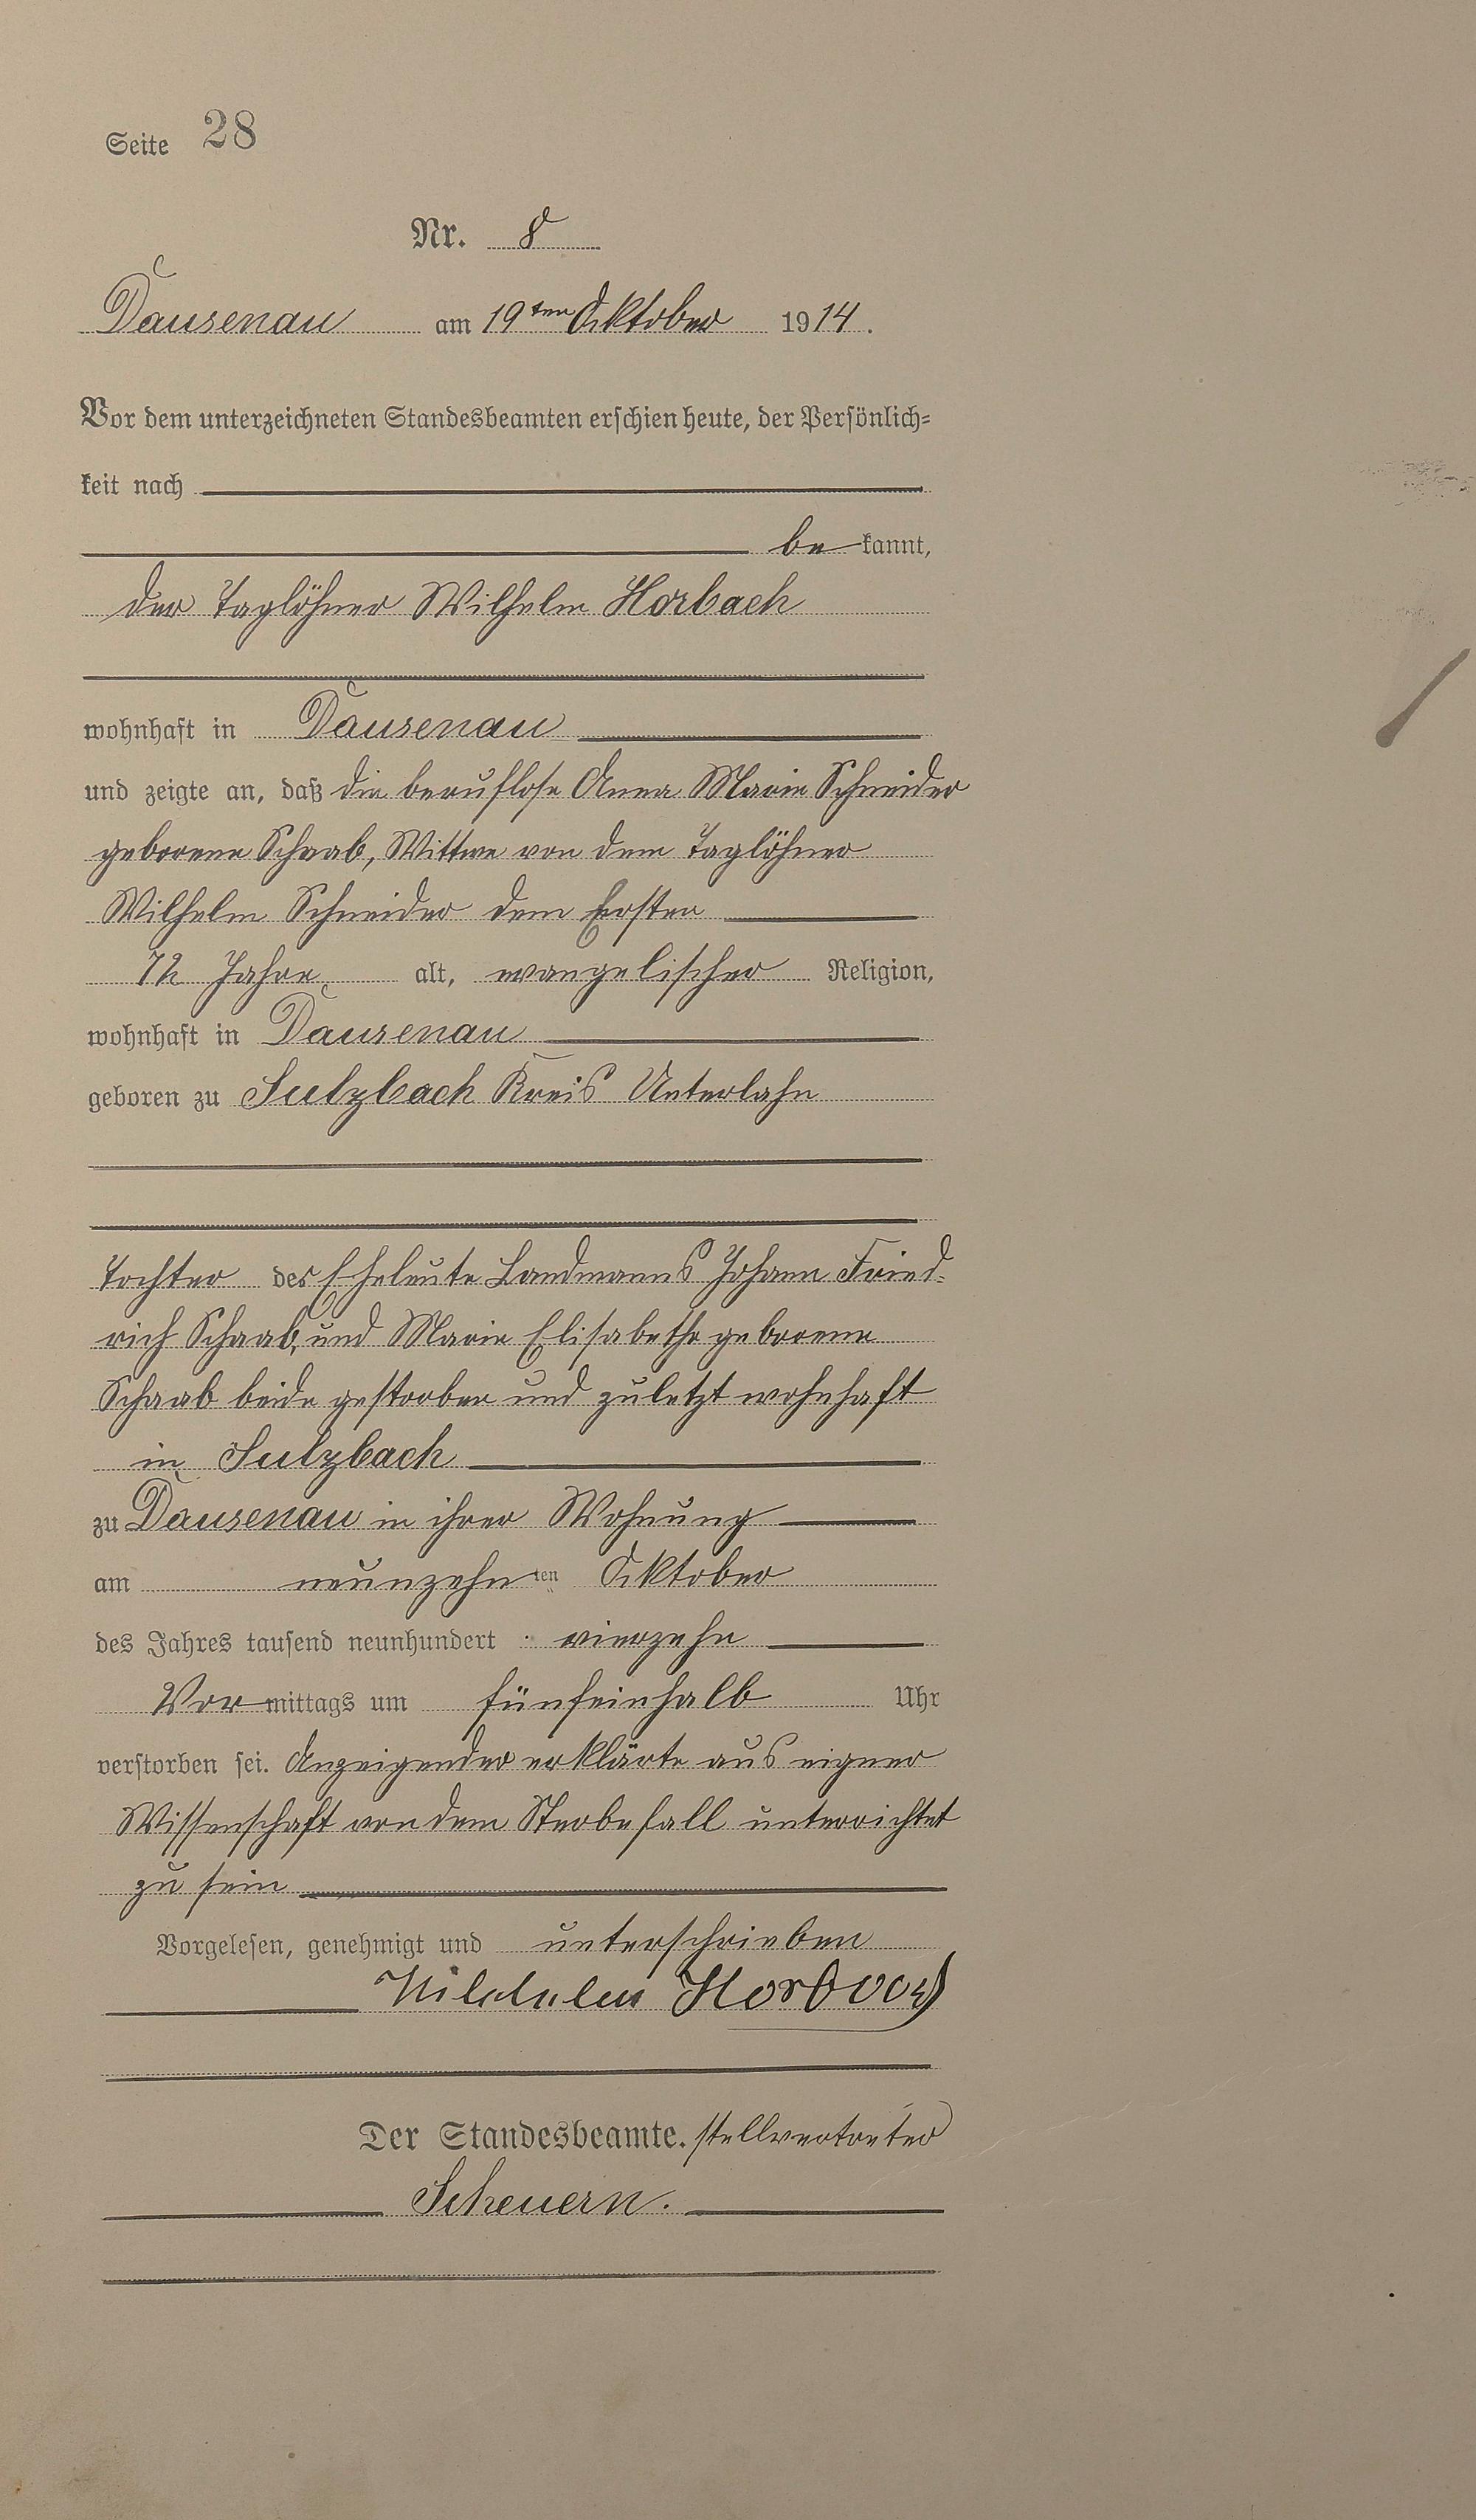 Seite 28
Nr. 8
Dausenau am 19ten Oktober 1914.
Vor dem unterzeichneten Standesbeamten erschien heute, der Persönlich=
keit nach
be kannt,
der Taglöhner Wilhelm Horbach
wohnhaft in Dausenau
und zeigte an, daß die beruflose Anna Marie Schneider
geborene Schaab, Wittwe von dem Taglöhner
Wilhelm Schneider dem Ersten
72 Jahre alt, evangelischer Religion,
wohnhaft in Dausenau
geboren zu Sulzbach Kreis Unterlahn
Tochter der Eheleute Landmanns Johann Fried-
rich Schaab, und Marie Elisabethe geborene
Schaab beide gestorben und zuletzt wohnhaft
in Sulzbach
zu Dausenau in ihrer Wohnung
am neunzehnten Oktober
des Jahres tausend neunhundert vierzehn
Vor mittags um fünfeinhalb Uhr
verstorben sei. Anzeigender erklärte aus eigner
Wissenschaft von dem Sterbefall unterrichtet
zu sein
Vorgelesen, genehmigt und unterschrieben
Wilhelm Horbach
Der Standesbeamte. stellvertreter
Scheuern.